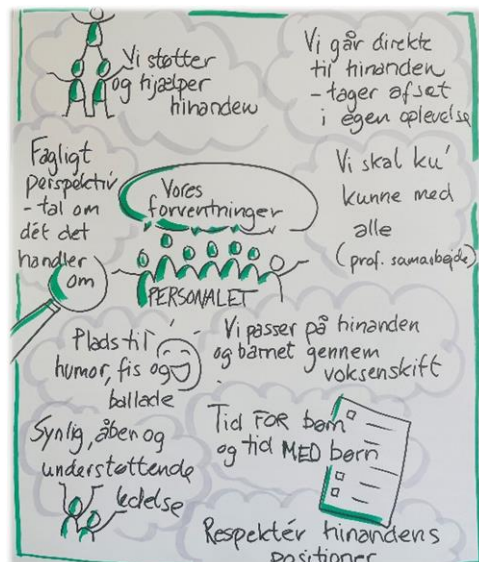 Vi støtter
og hjælper
hinanden
Vi går direkte
til hinanden
- tager afsæt
i egen oplevelse
Fagligt
perspektiv
- tal om
dét det
handler
om
Vores
forventninger
PERSONALET
Vi skal ku'
kunne med
alle
(prof. samarbejde)
Plads til
humor, fis og
ballade
Vi passer på hinanden
og barnet gennem
voksenskift
Synlig, åben og
understøttende
ledelse
Tid FOR børn
og tid MED børn
Respektér hinandens
positioner